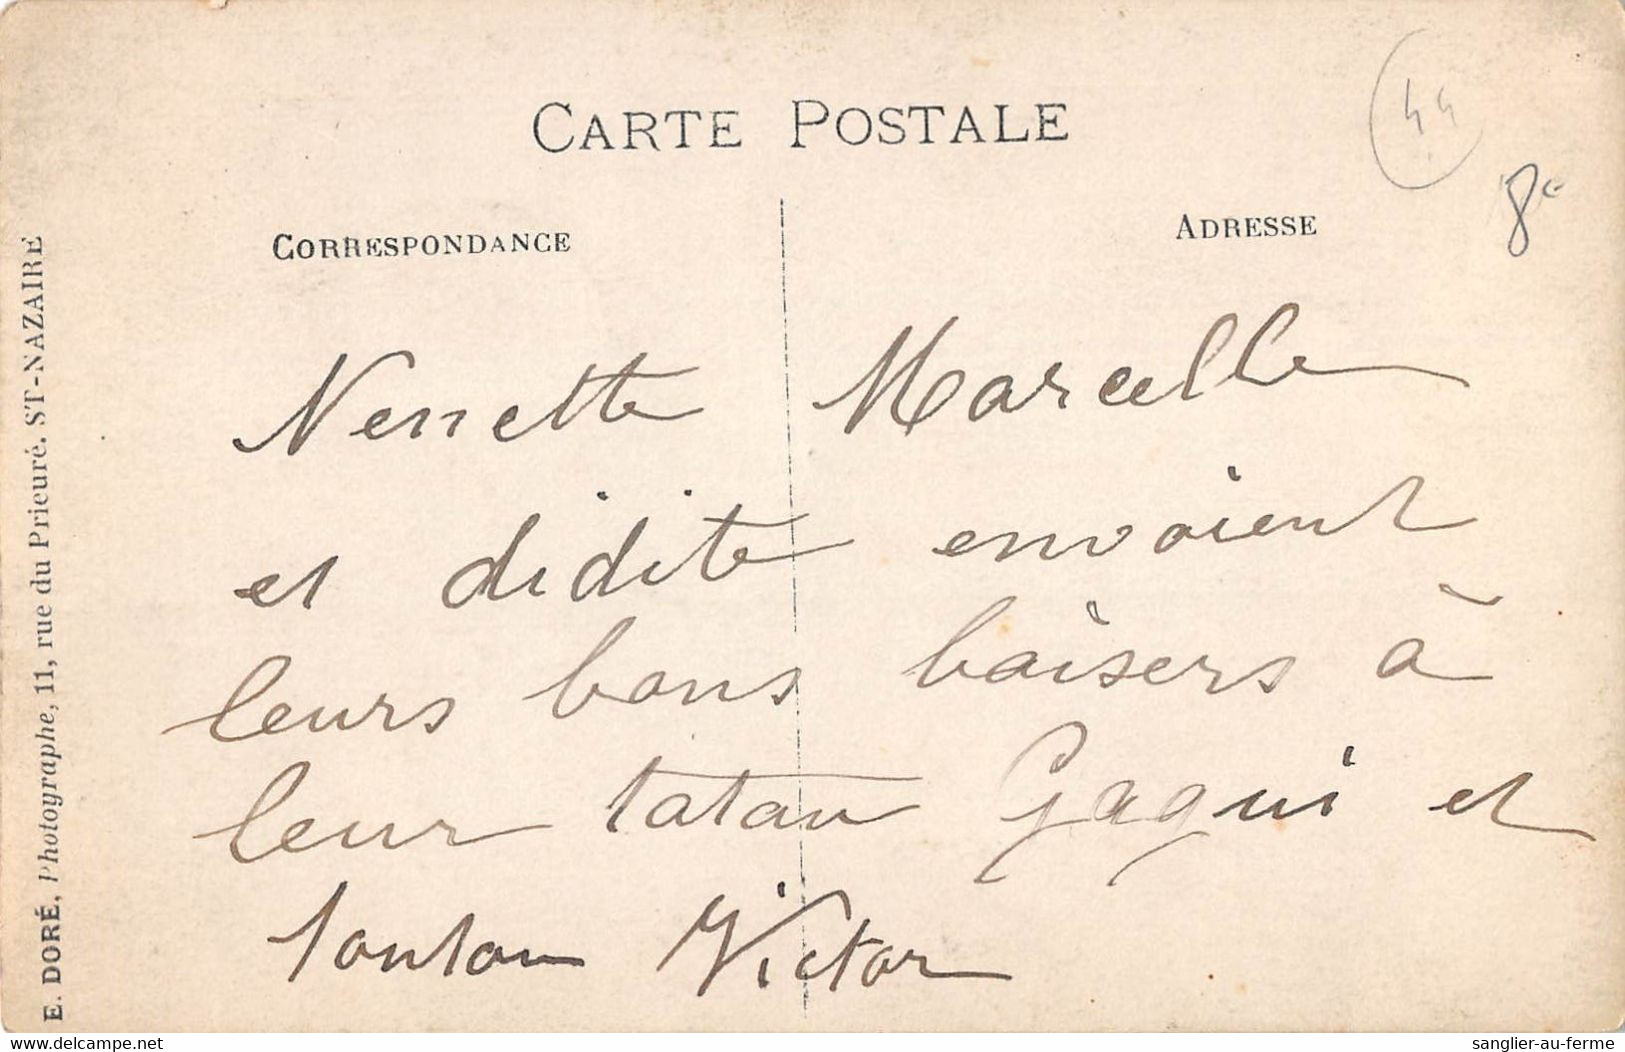 CARTE POSTALE
44
8€
CORRESPONDANCE
ADRESSE
Nenette Marcelle
et didite envoient
leurs bons baisers à
leur tatan Gaqui et
tonton Victor
E. DORÉ, Photographe, 11, rue du Prieuré. ST-NAZAIRE
www.delcampe.net
sanglier-au-ferme